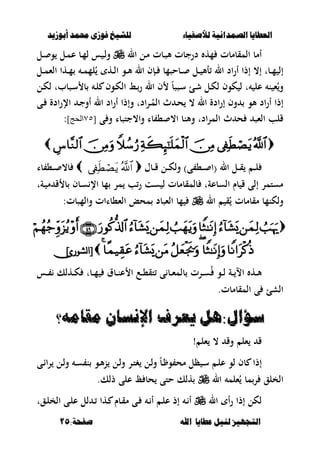 العطايا الصمدانية للأصفياء للشيخ فوزى محمد أبوزيد
أما المقامات فهذه درجات هبات من الله وليس لها عمل يوصل
إليها، إلا إذا أراد الله تأهيل صاحبها فإن الله هو الذى يُلهمه بهذا العمل
ويُعينه عليه، ليكون لكل شئ سبباً لأن الله ربط الكون كله بالأسباب، لكن
إذا أراد هو بدون إرادة الله لا يحدث المُراد، وإذا أراد الله أوجد الإرادة فى
قلب العبد فحدث المراد، وهنا الاصطفاء والاجتباء وفى [٧٥الحج]:
ٱللَّهُ يَصْطَفِى مِنَ ٱلْمَلَـٰٓئِكَةِ رُسُلًا وَمِنَ ٱلنَّاسِ
فلم يقل الله (اصطفى) ولكن قال يَصْطَفِى فالاصطفاء
مستمر إلى قيام الساعة، فالمقامات ليست رتب يمر بها الإنسان بالأقدمية،
ولكنها مقامات يُقيم الله فيها العباد بمحض العطاءات والهبات:
يَهَبُ لِمَن يَشَآءُ إِنَـٰثًا وَيَهَبُ لِمَن يَشَآءُ ٱلذُّكُورَ ﴿٤٩﴾ أَوْ يُزَوِّجُهُمْ
ذُكْرَانًا وَإِنَـٰثًا وَيَجْعَلُ مَن يَشَآءُ عَقِيمًا [الشورى]
هذه الآية لو فُسرت بالمعانى تتقطع الأعناق فيها، فكذلك نفس
الشئ فى المقامات.
سؤال: هل يعرف الإنسان مقامه؟
قد يعلم وقد لا يعلم!
إذا كان لو علم سيظل محفوظاً ولن يغتر ولن يزهو بنفسه ولن يرائى
الخلق فربما يُعلمه الله بذلك حتى يحافظ على ذلك.
لكن إذا رأى الله أنه إذ علم أنه فى مقام كذا تدلل على الخلق،
التجهيز لنيل عطايا الله صفحة:٢٥